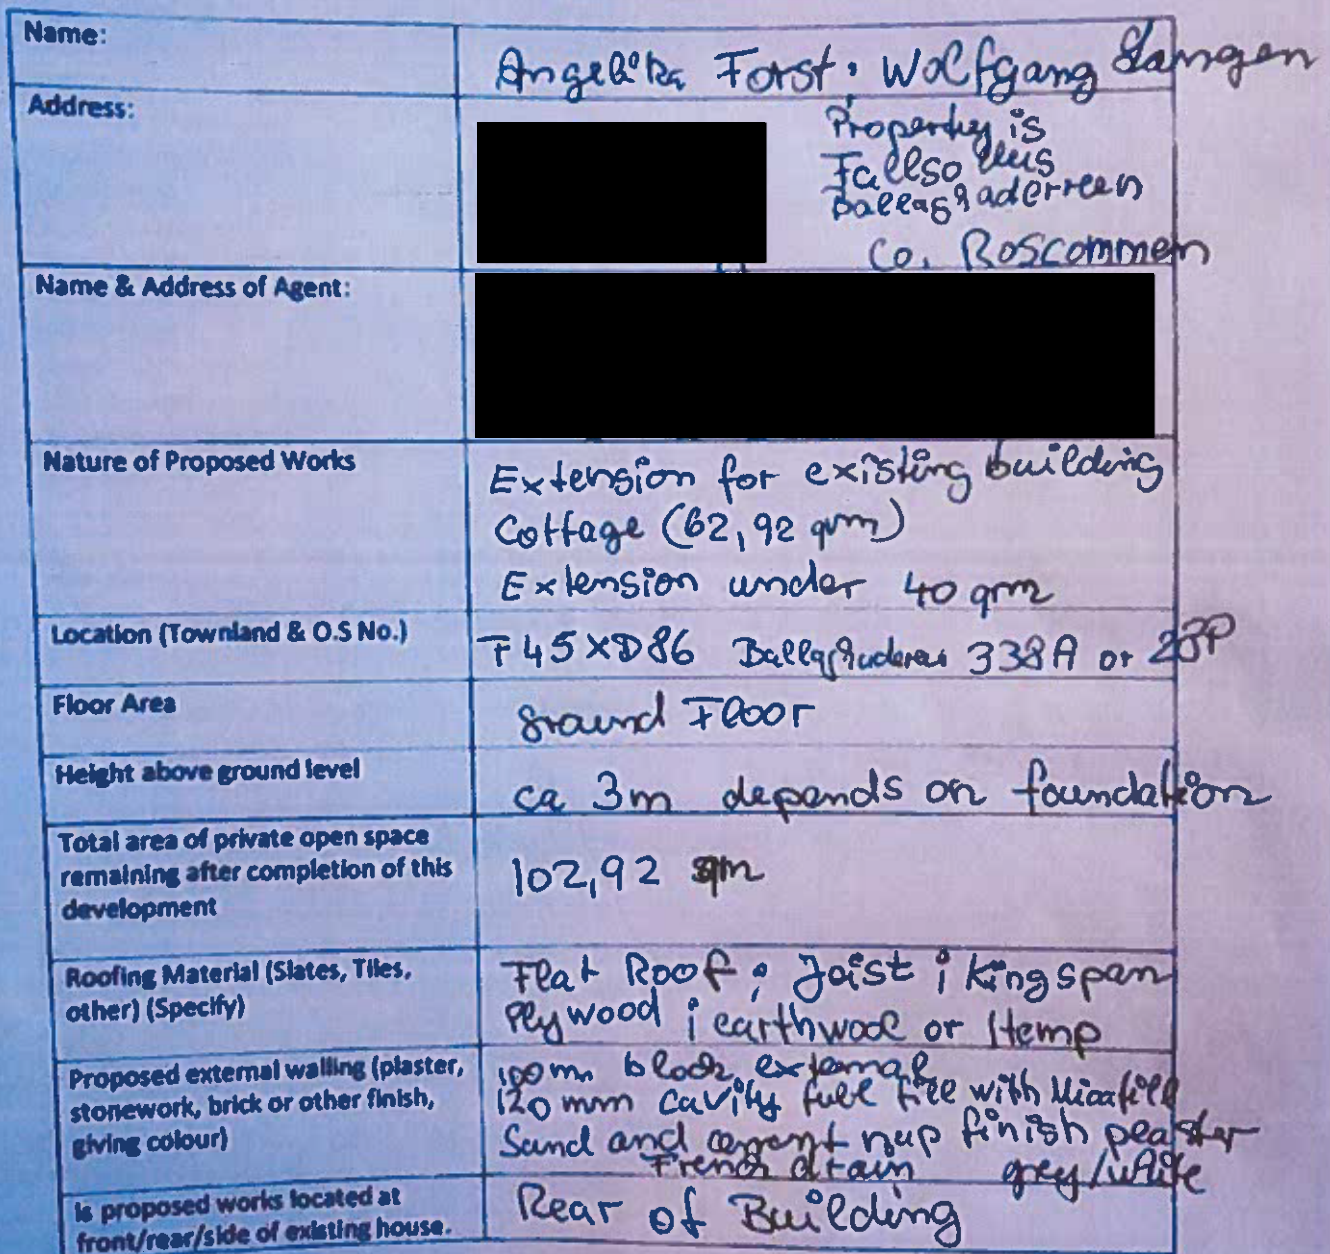 Name:
Angelika Forst; Wolfgang Langen
Address:
Property is
Ballaghaderreen
Co. Roscommon
Name & Address of Agent:
Nature of Proposed Works
Extension for existing building
Cottage (62,92 qm)
Extension under 40 qm
Location (Townland & O.S No.)
F45XD86 338A or
Floor Area
ground Floor
Height above ground level
ca 3m depends on foundation
Total area of private open space
remaining after completion of this
development
102,92 qm
Roofing Material (Slates, Tiles,
other) (Specify)
Flat Roof; Joist; Kingspan
Plywood; earthwool or Hemp
Proposed external walling (plaster,
stonework, brick or other finish,
giving colour)
100mm block external
120 mm cavity full fill with
Sand and cement nap finish plaster
French drain grey/white
Is proposed works located at
front/rear/side of existing house.
Rear of Building